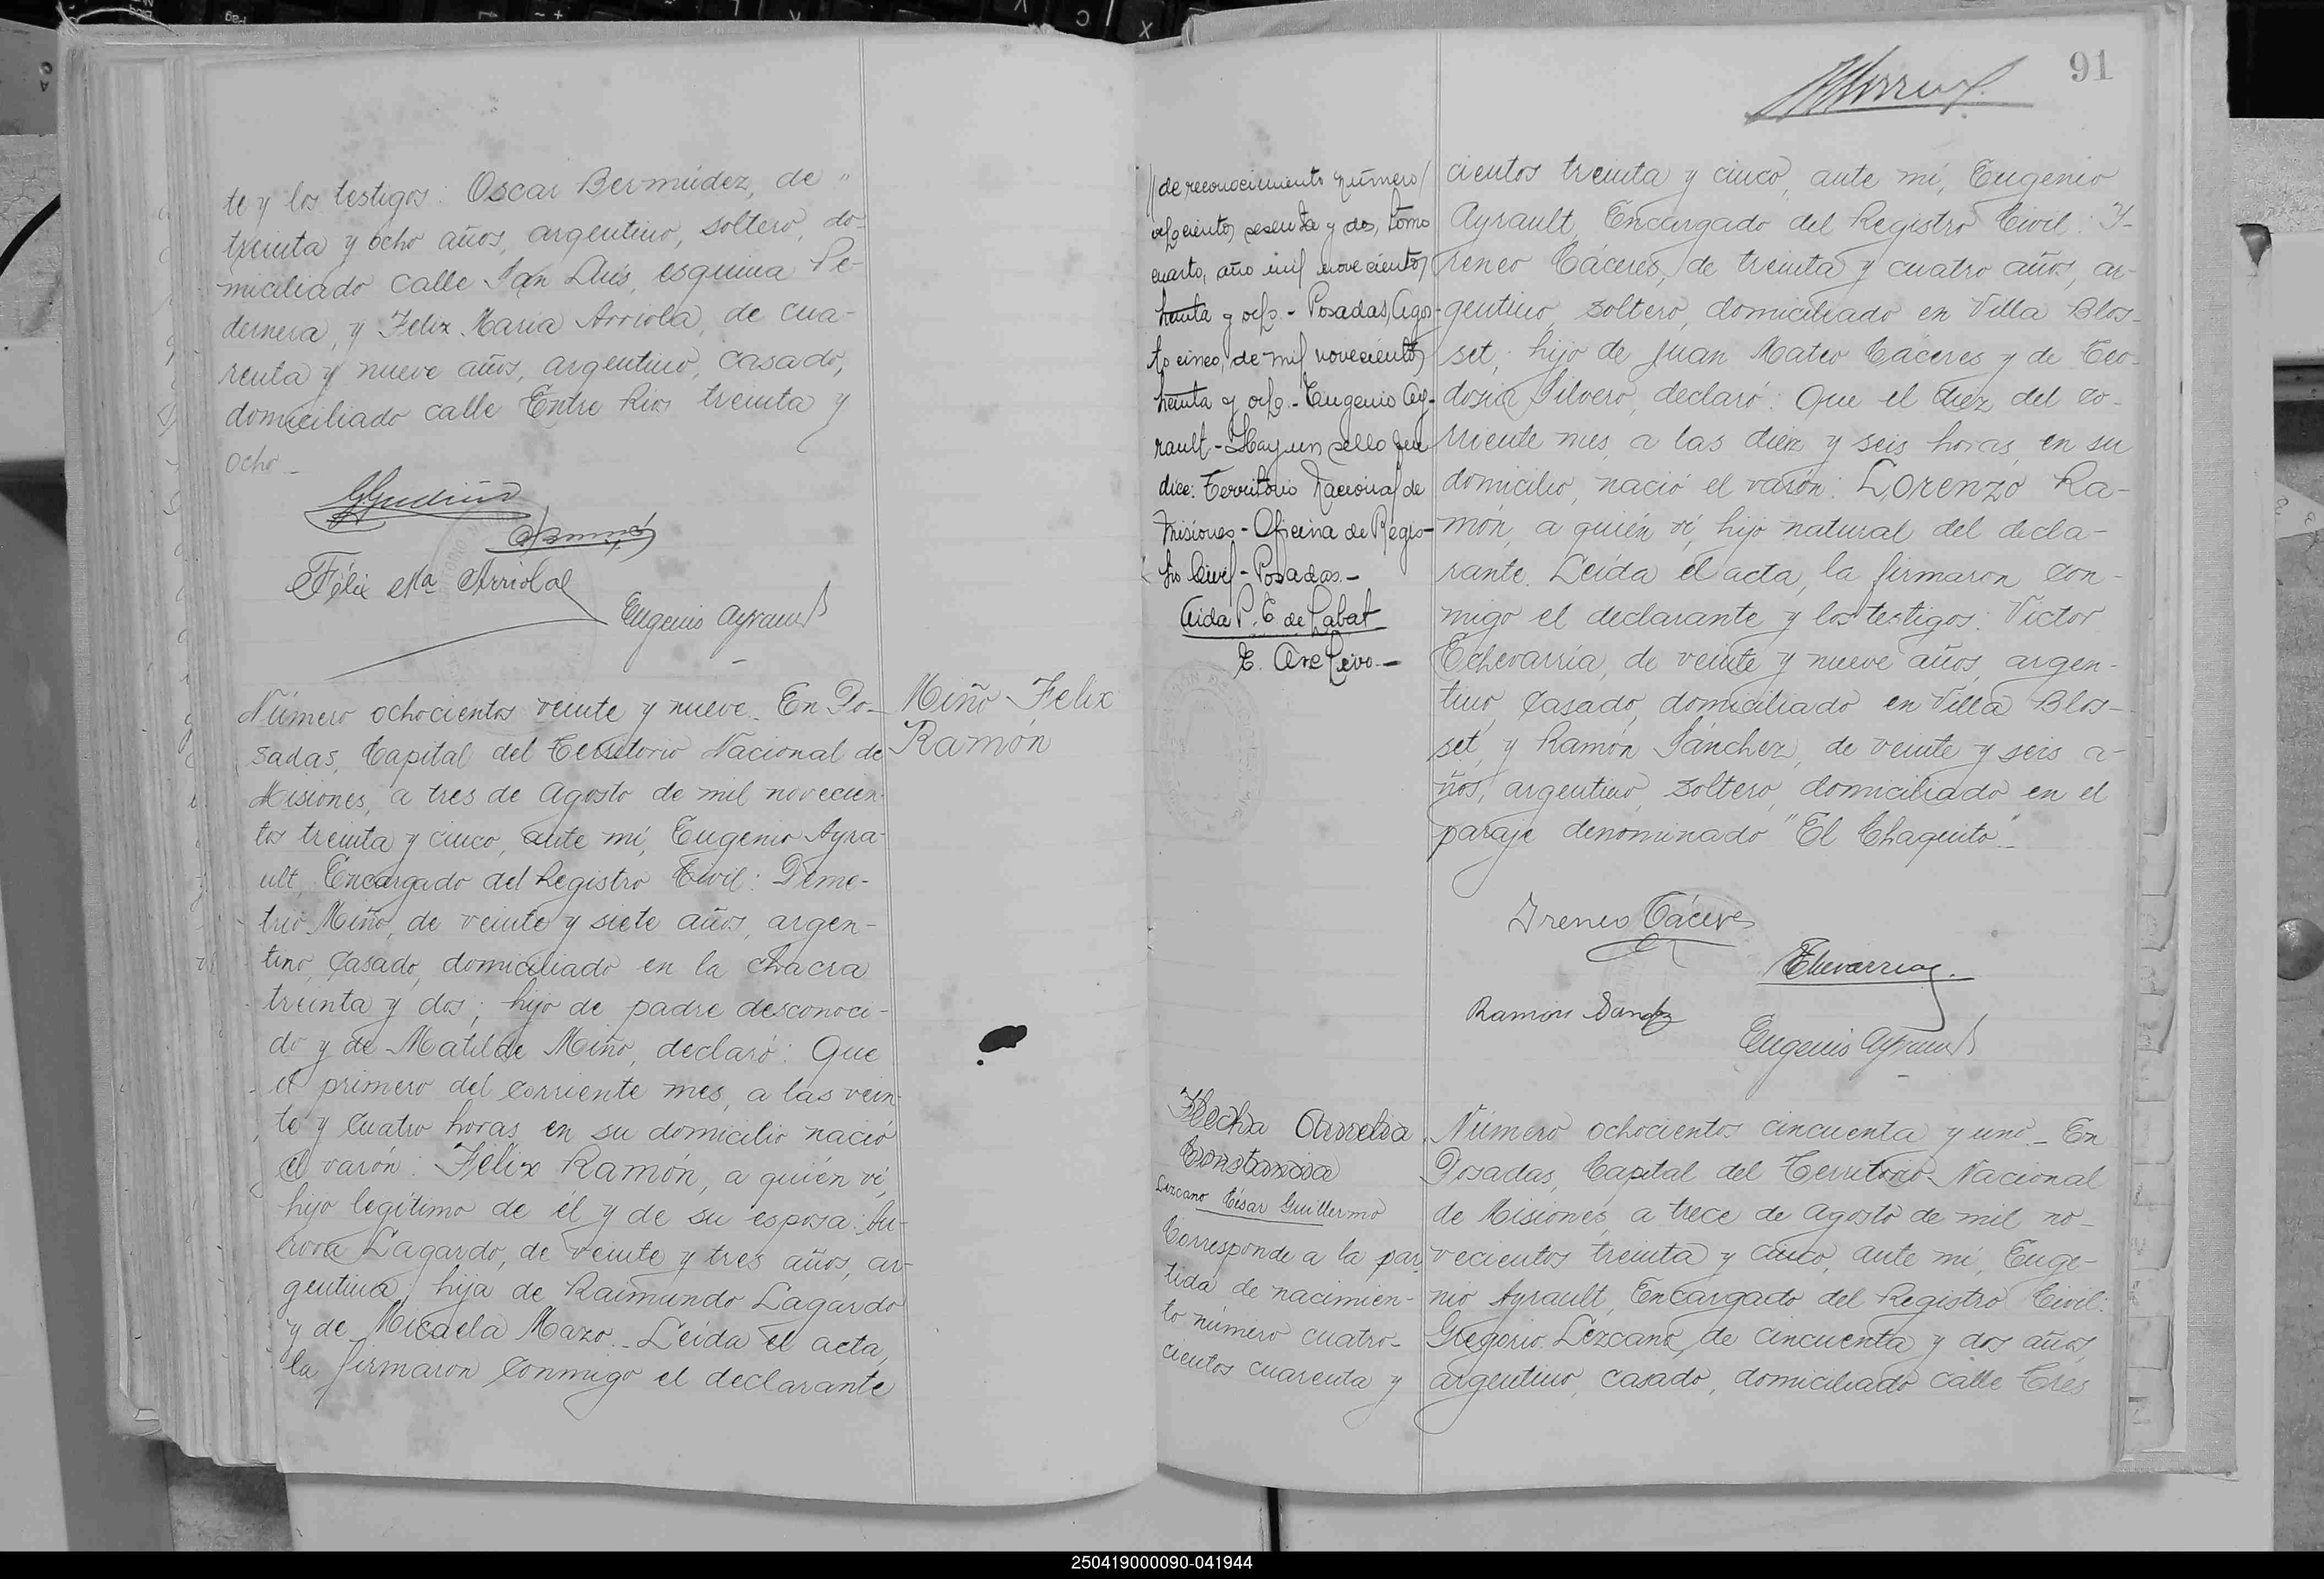 te y los testigos: Oscar Bermúdez, de "
treinta y ocho años, argentino, soltero, do-
miciliado calle San Luis, esquina Pe-
dernera, y Felix María Arriola, de cua-
renta y nueve años, argentino, casado,
domiciliado calle Entre Rios treinta y
ocho._
Félix Ma Arriola
Eugenio Ayrault
Número ochocientos veinte y nueve._ En Po-
sadas, Capital del Territorio Nacional de
Misiones, a tres de Agosto de mil novecien-
tos treinta y cinco, ante mí, Eugenio Ayra-
ult, Encargado del Registro Civil: Deme-
trio Miño, de veinte y siete años, argen-
tino, casado, domiciliado en la chacra
treinta y dos; hijo de padre desconoci-
do y de Matilde Miño, declaró: Que
el primero del corriente mes, a las vein-
te y cuatro horas, en su domicilio nació
el varón: Félix Ramón, a quién ví,
hijo legítimo de él y de su esposa: Au-
rora Lagardo, de veinte y tres años, ar-
gentina; hija de Raimundo Lagardo
y de Micaela Mazo._ Leída el acta,
la firmaron conmigo el declarante
Miño Felix
Ramón
91
// de reconocimiento número
ochocientos sesenta y dos, tomo
cuarto, año mil novecientos
treinta y ocho.- Posadas, Agos-
to cinco, de mil novecientos
treinta y ocho.- Eugenio Ay-
rault.- Hay un sello que
dice: Territorio Nacional de
Misiones - Oficina de Regis-
tro Civil - Posadas.-
Aida P. E. de Labat
E. Archivo.-
cientos treinta y cinco, ante mí, Eugenio
Ayrault, Encargado del Registro Civil: I-
reneo Cáceres, de treinta y cuatro años, ar-
gentino, soltero, domiciliado en Villa Blos-
set; hijo de Juan Mateo Cáceres y de Teo-
dosia Silvero, declaró: Que el diez del co-
rriente mes, a las diez y seis horas, en su
domicilio, nació el varón: Lorenzo Ra-
món, a quién ví, hijo natural del decla-
rante. Leída el acta, la firmaron con-
migo el declarante y los testigos: Victor
Echevarría, de veinte y nueve años, argen-
tino, casado, domiciliado en Villa Blos-
set, y Ramón Sánchez, de veinte y seis a-
ños, argentino, soltero, domiciliado en el
paraje denominado "El Chaquito"._
Ireneo Cáceres
Echevarria
Ramón Sanchez
Eugenio Ayrault
Flecha Aurelia
Constancia
Lezcano César Guillermo
Corresponde a la par-
tida de nacimien-
to número cuatro-
cientos cuarenta y
Número ochocientos cincuenta y uno._ En
Posadas, Capital del Territorio Nacional
de Misiones, a trece de Agosto de mil no-
vecientos treinta y cinco, ante mí, Euge-
nio Ayrault, Encargado del Registro Civil:
Gregorio Lezcano, de cincuenta y dos años,
argentino, casado, domiciliado calle Tres
250419000090-041944